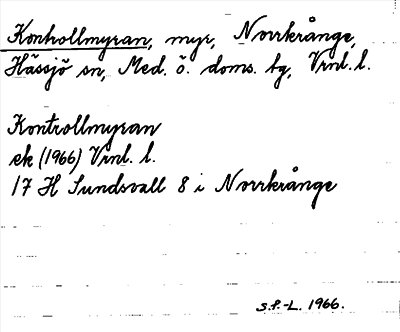 Kontrollmyran, myr, Norrkrånge,
Hässjö sn, Med. ö. doms. bg, Vrnl. l.
Kontrollmyran
ek (1966) Vrnl. l.
17 H Sundsvall 8 i Norrkrånge
S.F.-L. 1966.